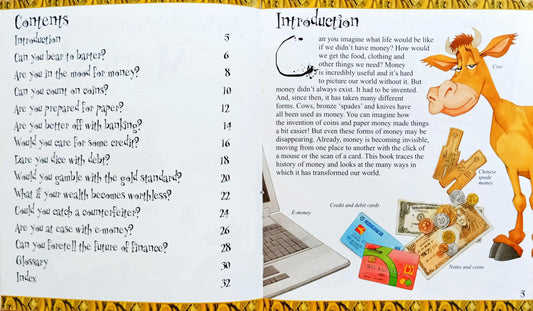 Contents
Introduction 5
Can you bear to barter? 6
Are you in the mood for money? 8
Can you count on coins? 10
Are you prepared for paper? 12
Are you better off with banking? 14
Would you care for some credit? 16
Dare you dice with debt? 18
Would you gamble with the gold standard? 20
What if your wealth becomes worthless? 22
Could you catch a counterfeiter? 24
Are you at ease with e-money? 26
Can you foretell the future of finance? 28
Glossary 30
Index 32
Introduction
Can you imagine what life would be like
if we didn't have money? How would
we get the food, clothing and
other things we need? Money
is incredibly useful and it's hard
to picture our world without it. But
money didn't always exist. It had to be invented.
And, since then, it has taken many different
forms. Cows, bronze 'spades' and knives have
all been used as money. You can imagine how
the invention of coins and paper money made things
a bit easier! But even these forms of money may be
disappearing. Already, money is becoming invisible,
moving from one place to another with the click of
a mouse or the scan of a card. This book traces the
history of money and looks at the many ways in
which it has transformed our world.
Cow
Chinese
spade
money
E-money
Credit and debit cards
Notes and coins
5